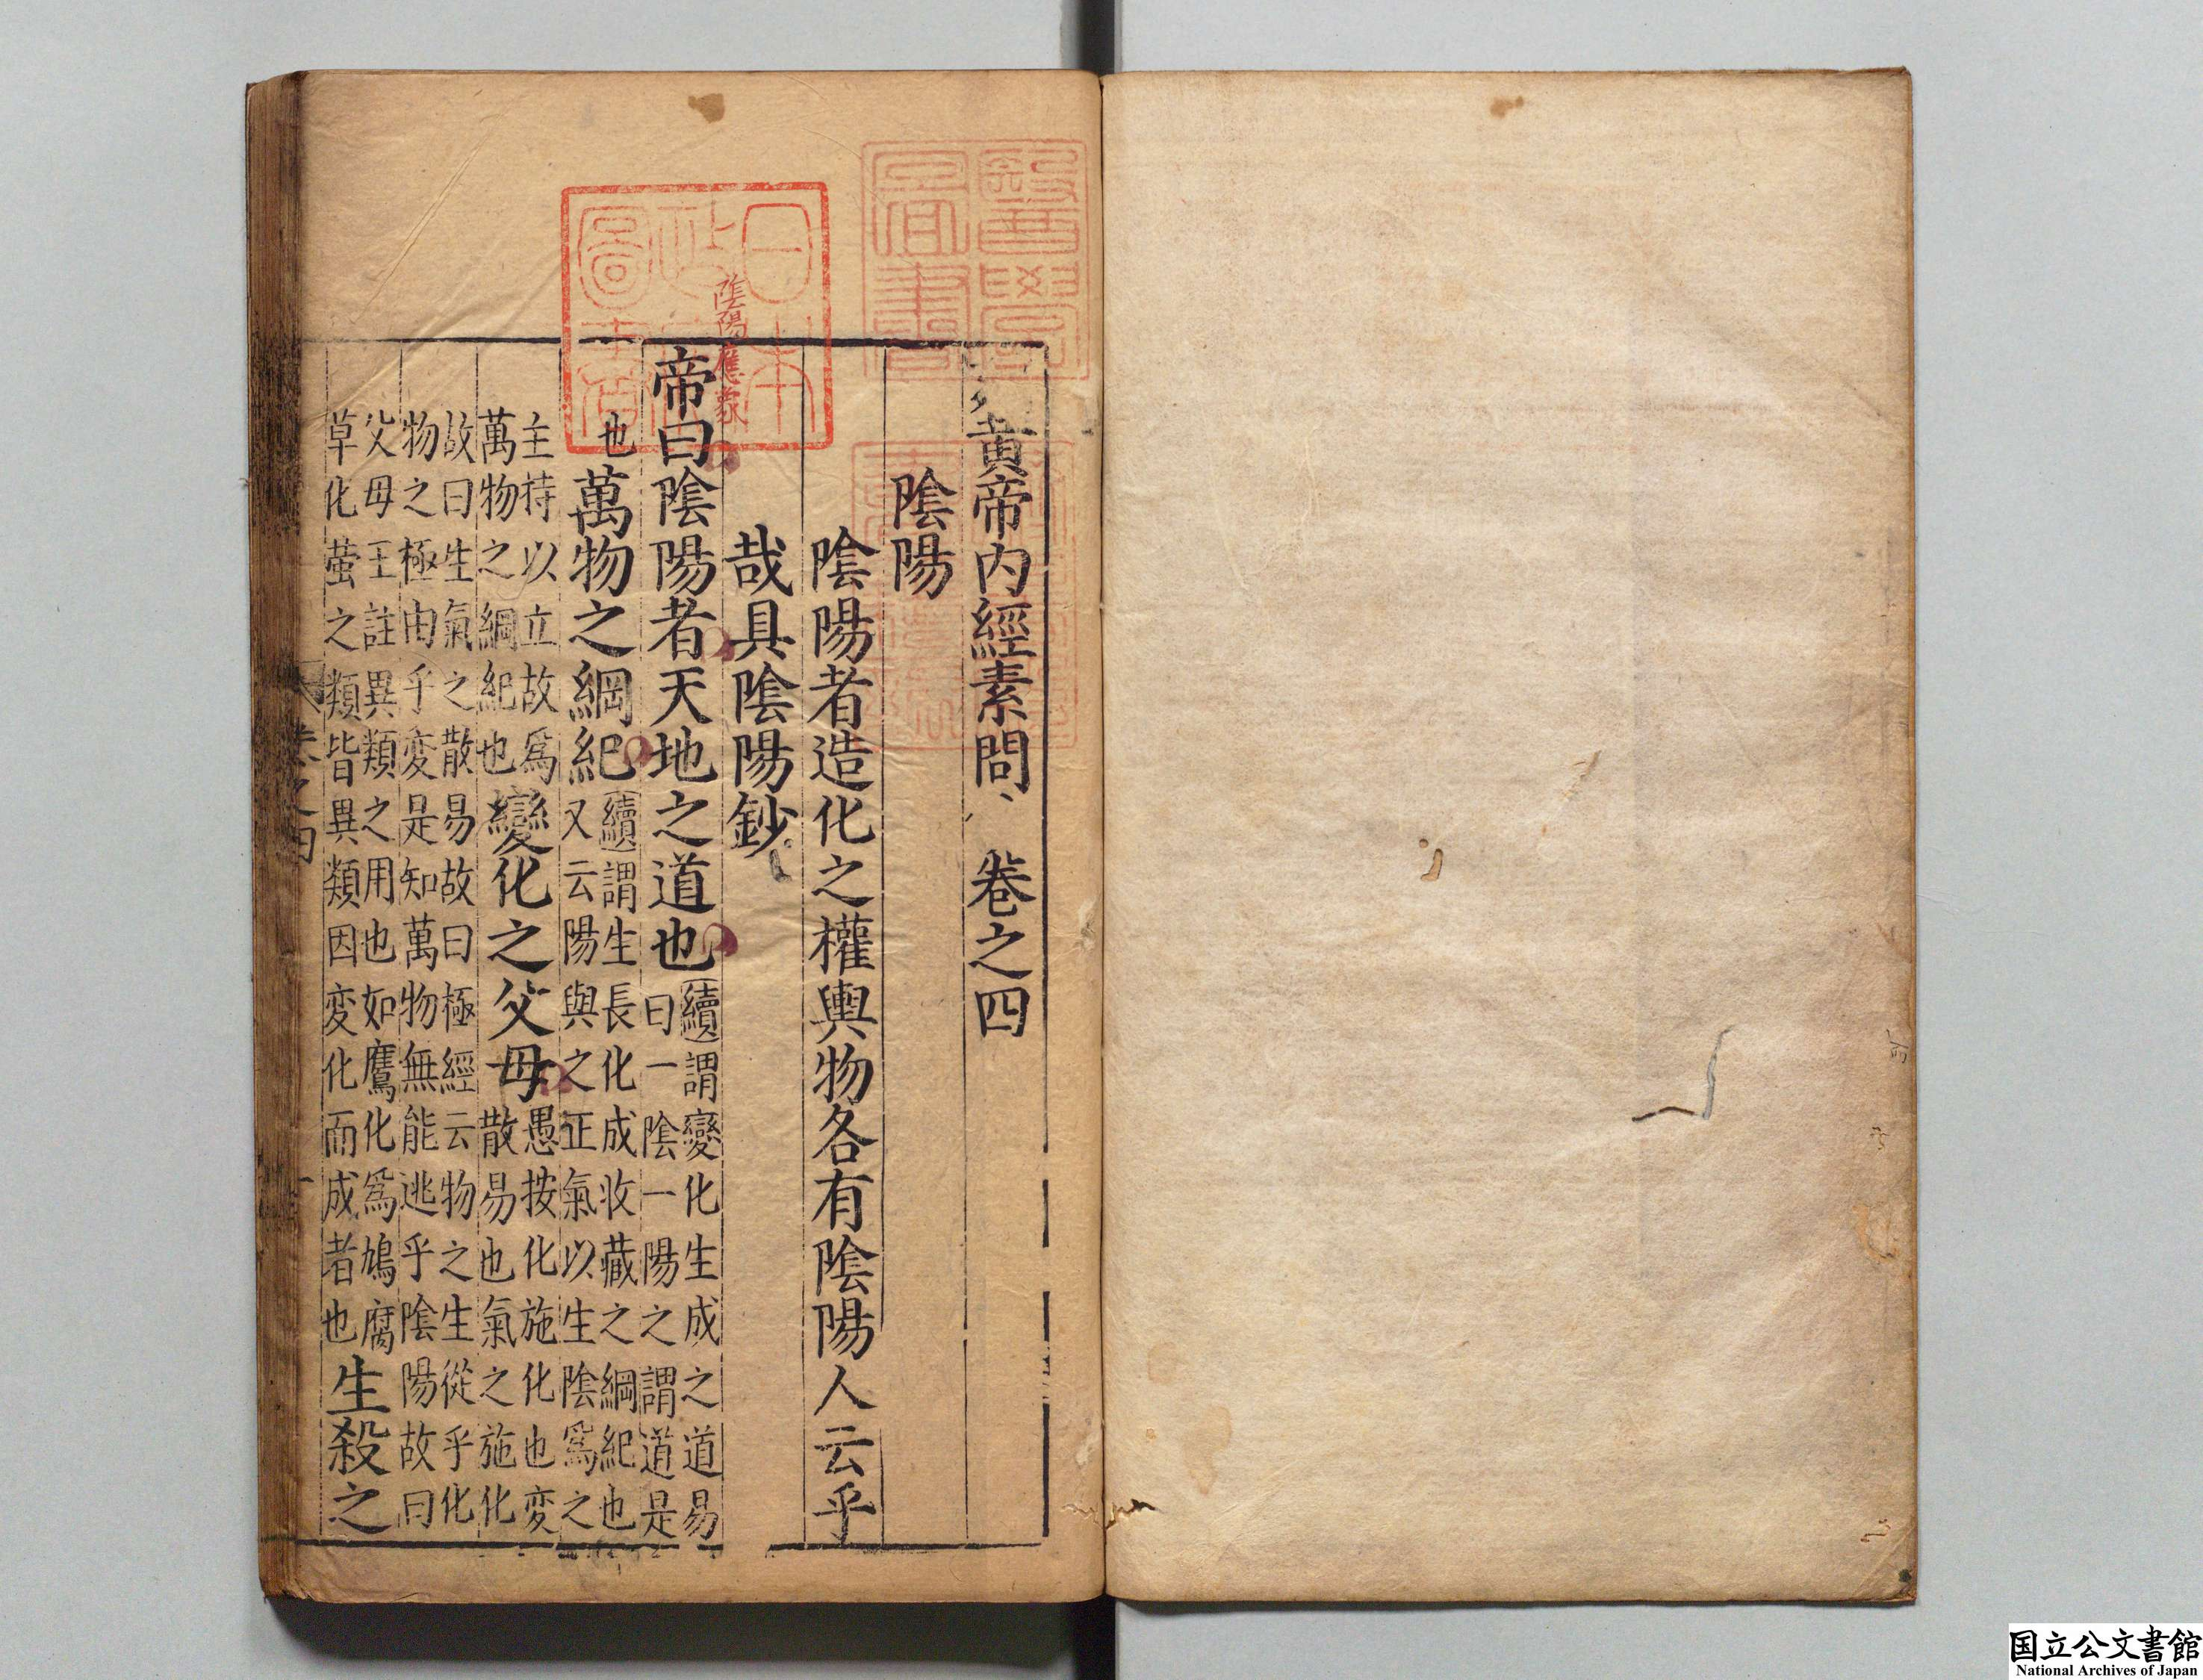 黄帝内經素問、 卷之四
陰陽
陰陽者造化之權輿物各有陰陽人云乎
哉具陰陽鈔
陰陽應象
帝曰陰陽者天地之道也
續謂變化生成之道易
曰一陰一陽之謂道是
也萬物之綱紀
續謂生長化成收藏之綱紀也
又云陽與之正氣以生陰爲之
主持以立故爲
萬物之綱紀也
變化之父母
愚按化施化也変
散易也氣之施化
故曰生氣之散易故曰極經云物之生從乎化
物之極由乎変是知萬物無能逃乎陰陽故曰
父母王註異類之用也如鷹化爲鳩腐
草化螢之類皆異類因変化而成者也
生殺之
卷之四
日本
圖
醫學
圖書
国立公文書館
National Archives of Japan